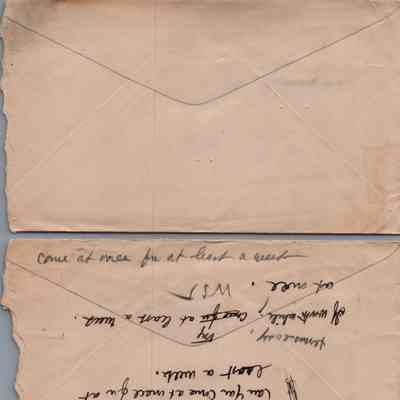 Come at once for at least a week
Can you Come at once for at
least a week.
try
If worth while, Come for at least a week.
at once.